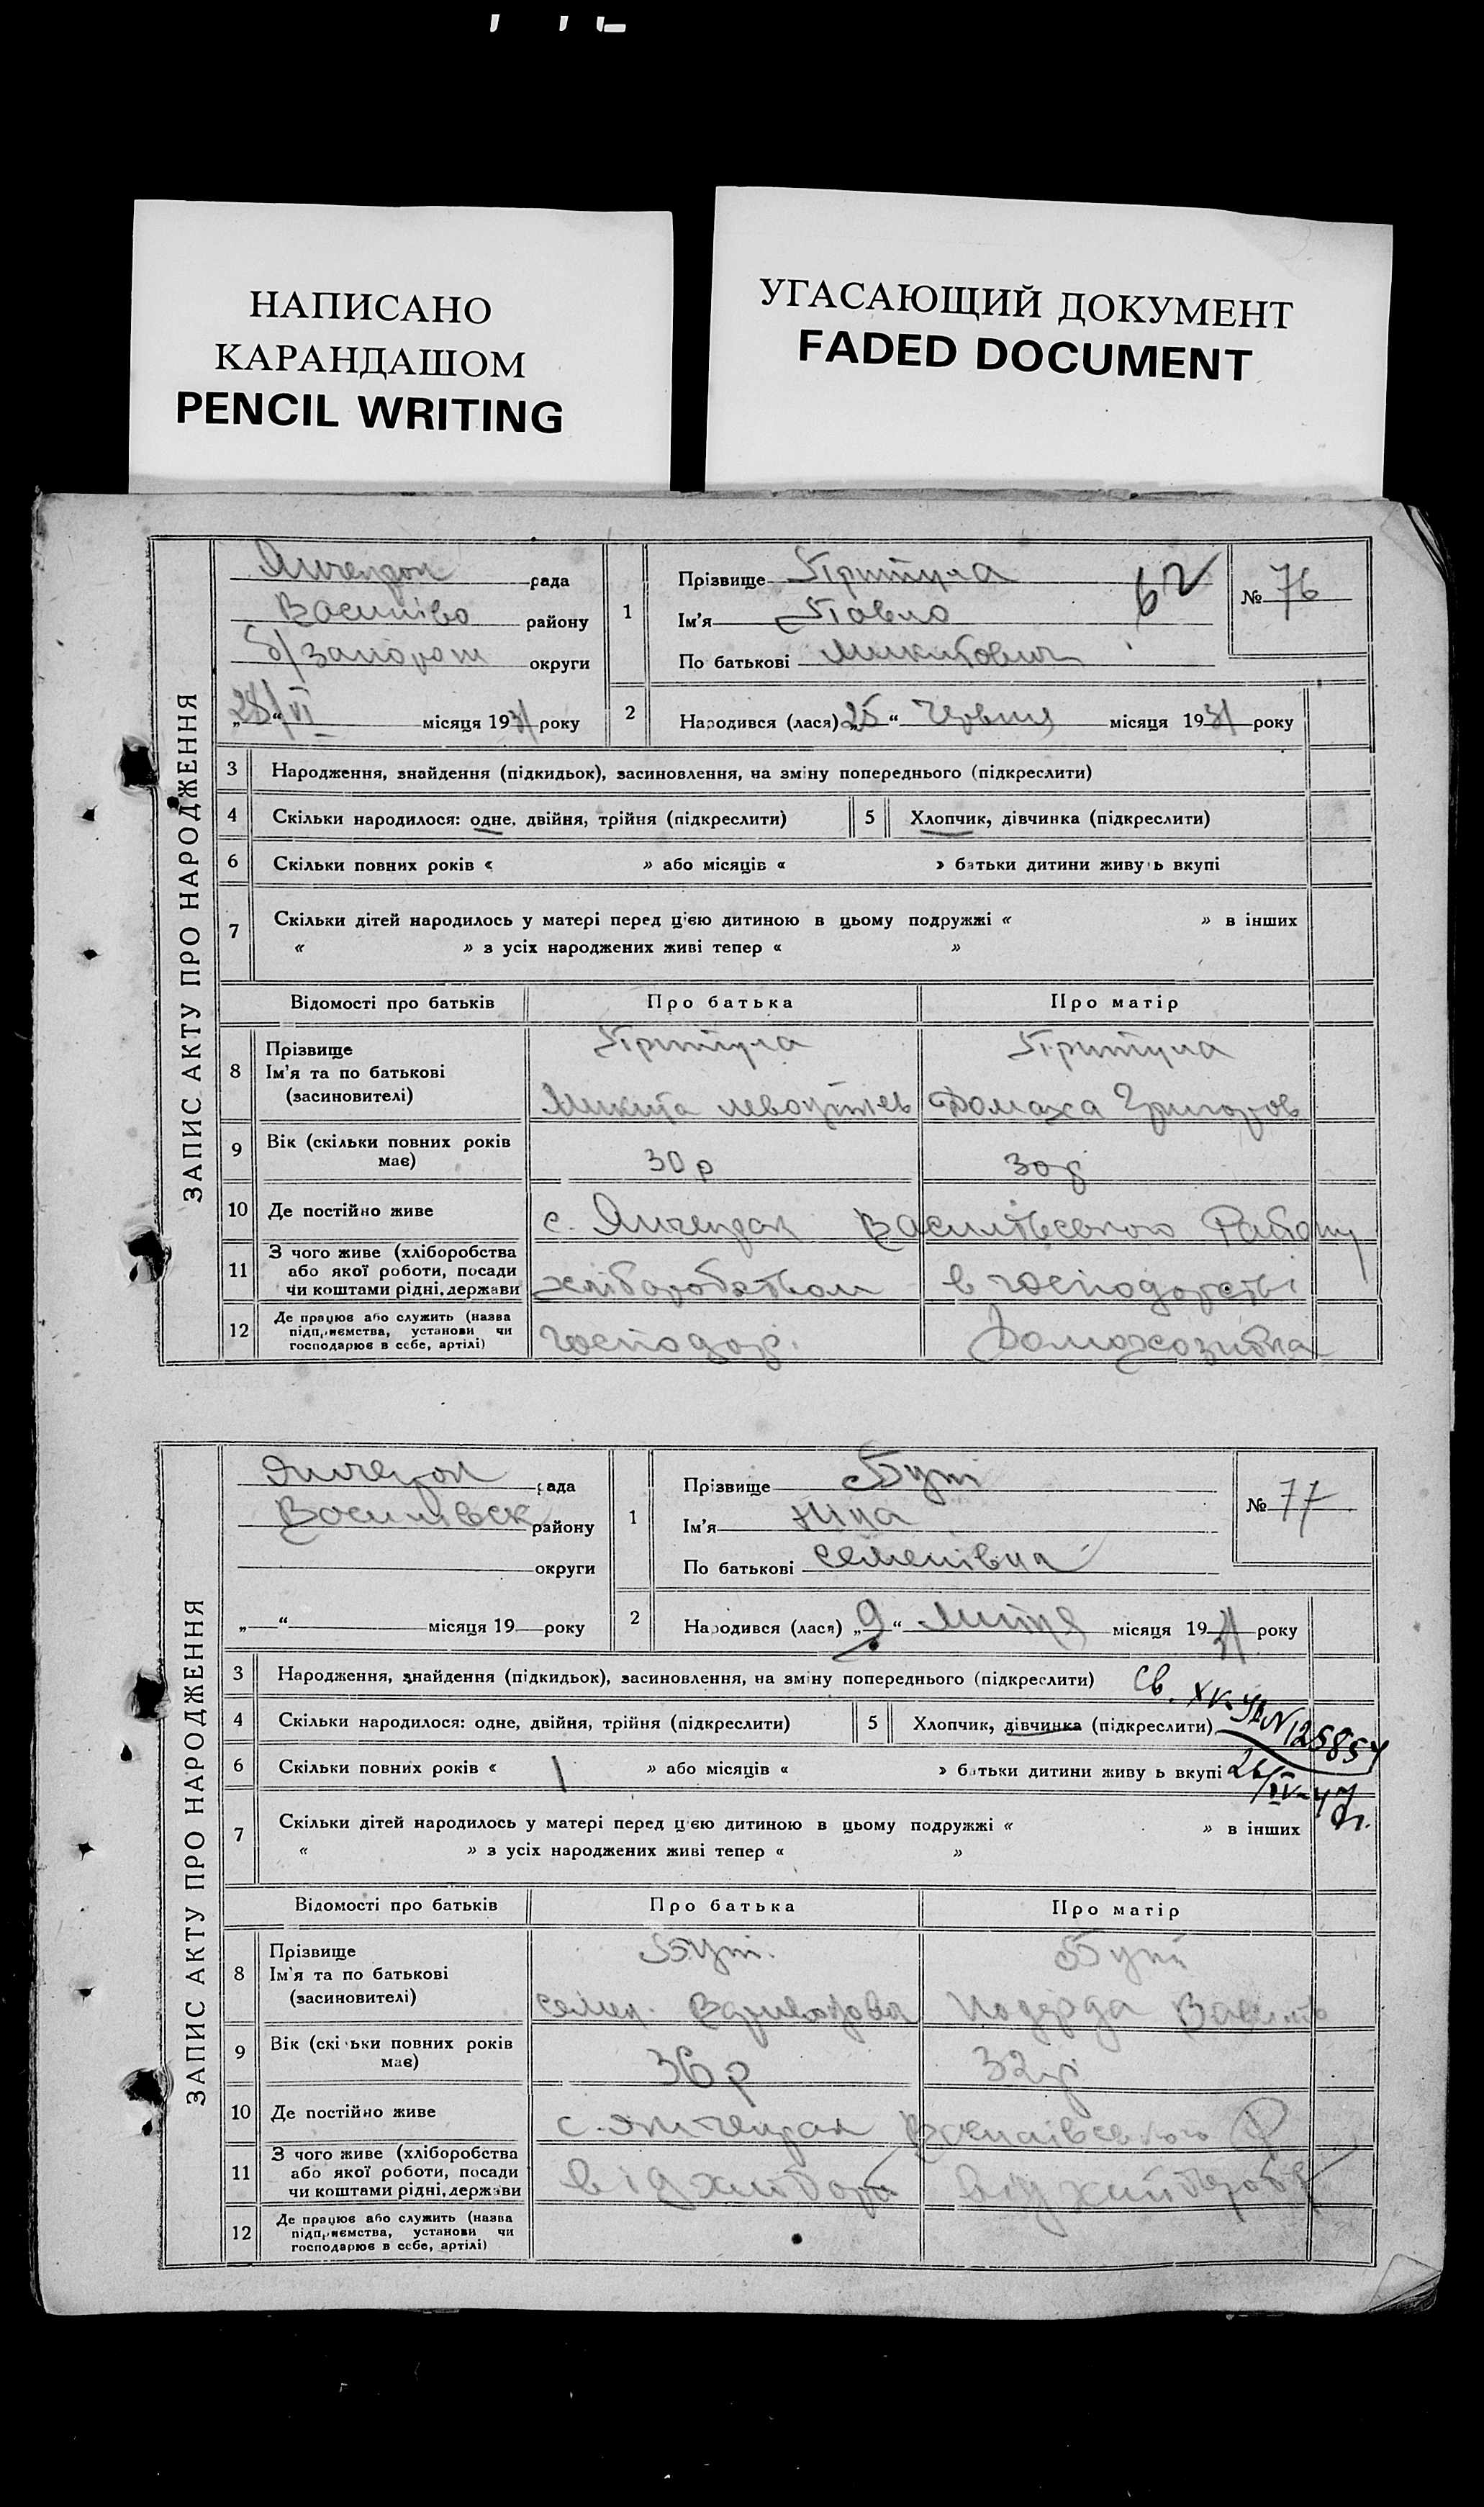 НАПИСАНО
КАРАНДАШОМ
PENCIL WRITING
УГАСАЮЩИЙ ДОКУМЕНТ
FADED DOCUMENT
ЗАПИС АКТУ ПРО НАРОДЖЕННЯ
Янчекрак рада
Василівс району
б/Запорож округи
„28/“ VI місяця 1931 року
1 Прізвище Притула
Ім'я Павло
По батькові Микитович
62
№ 76
2 Народився (лася) „25“ Червня місяця 1931 року
3 Народження, знайдення (підкидьок), засиновлення, на зміну попереднього (підкреслити)
4 Скільки народилося: одне, двійня, трійня (підкреслити) 5 Хлопчик, дівчинка (підкреслити)
6 Скільки повних років « » або місяців « » батьки дитини живу ь вкупі
7 Скільки дітей народилось у матері перед цією дитиною в цьому подружжі « » в інших
« » з усіх народжених живі тепер « »
Відомості про батьків Про батька Про матір
8 Прізвище Притула Притула
Ім'я та по батькові
(засновителі) Микита Домаха Григоров
9 Вік (скільки повних років має) 30 р 30 р
10 Де постійно живе с. Янчекрак Василівського Району
11 З чого живе (хліборобства
або якої роботи, посади
чи коштами рідні, держави хліборобством в господарстві
12 Де працює або служить (назва
підприємства, установи чи
господарює в себе, артілі) господар. Домохозяйка
ЗАПИС АКТУ ПРО НАРОДЖЕННЯ
Янчекрак рада
Василівськ району
округи
„ “ місяця 19 року
1 Прізвище Бут
Ім'я Ніна
По батькові Семенівна
№ 77
2 Народився (лася) „9“ Липня місяця 1931 року
3 Народження, знайдення (підкидьок), засиновлення, на зміну попереднього (підкреслити)
Св. N125854
4 Скільки народилося: одне, двійня, трійня (підкреслити) 5 Хлопчик, дівчинка (підкреслити)
6 Скільки повних років « 1 » або місяців « » батьки дитини живу ь вкупі
26/IV-47г.
7 Скільки дітей народилось у матері перед цією дитиною в цьому подружжі « » в інших
« » з усіх народжених живі тепер « »
Відомості про батьків Про батька Про матір
8 Прізвище Бут. Бут
Ім'я та по батькові
(засновителі) Семен.
9 Вік (скі ьки повних років має) 36 р 32 р
10 Де постійно живе с. Янчекрак Василівського Р
11 З чого живе (хліборобства
або якої роботи, посади
чи коштами рідні, держави від хлібороб від хлібороб
12 Де працює або служить (назва
підприємства, установи чи
господарює в себе, артілі)